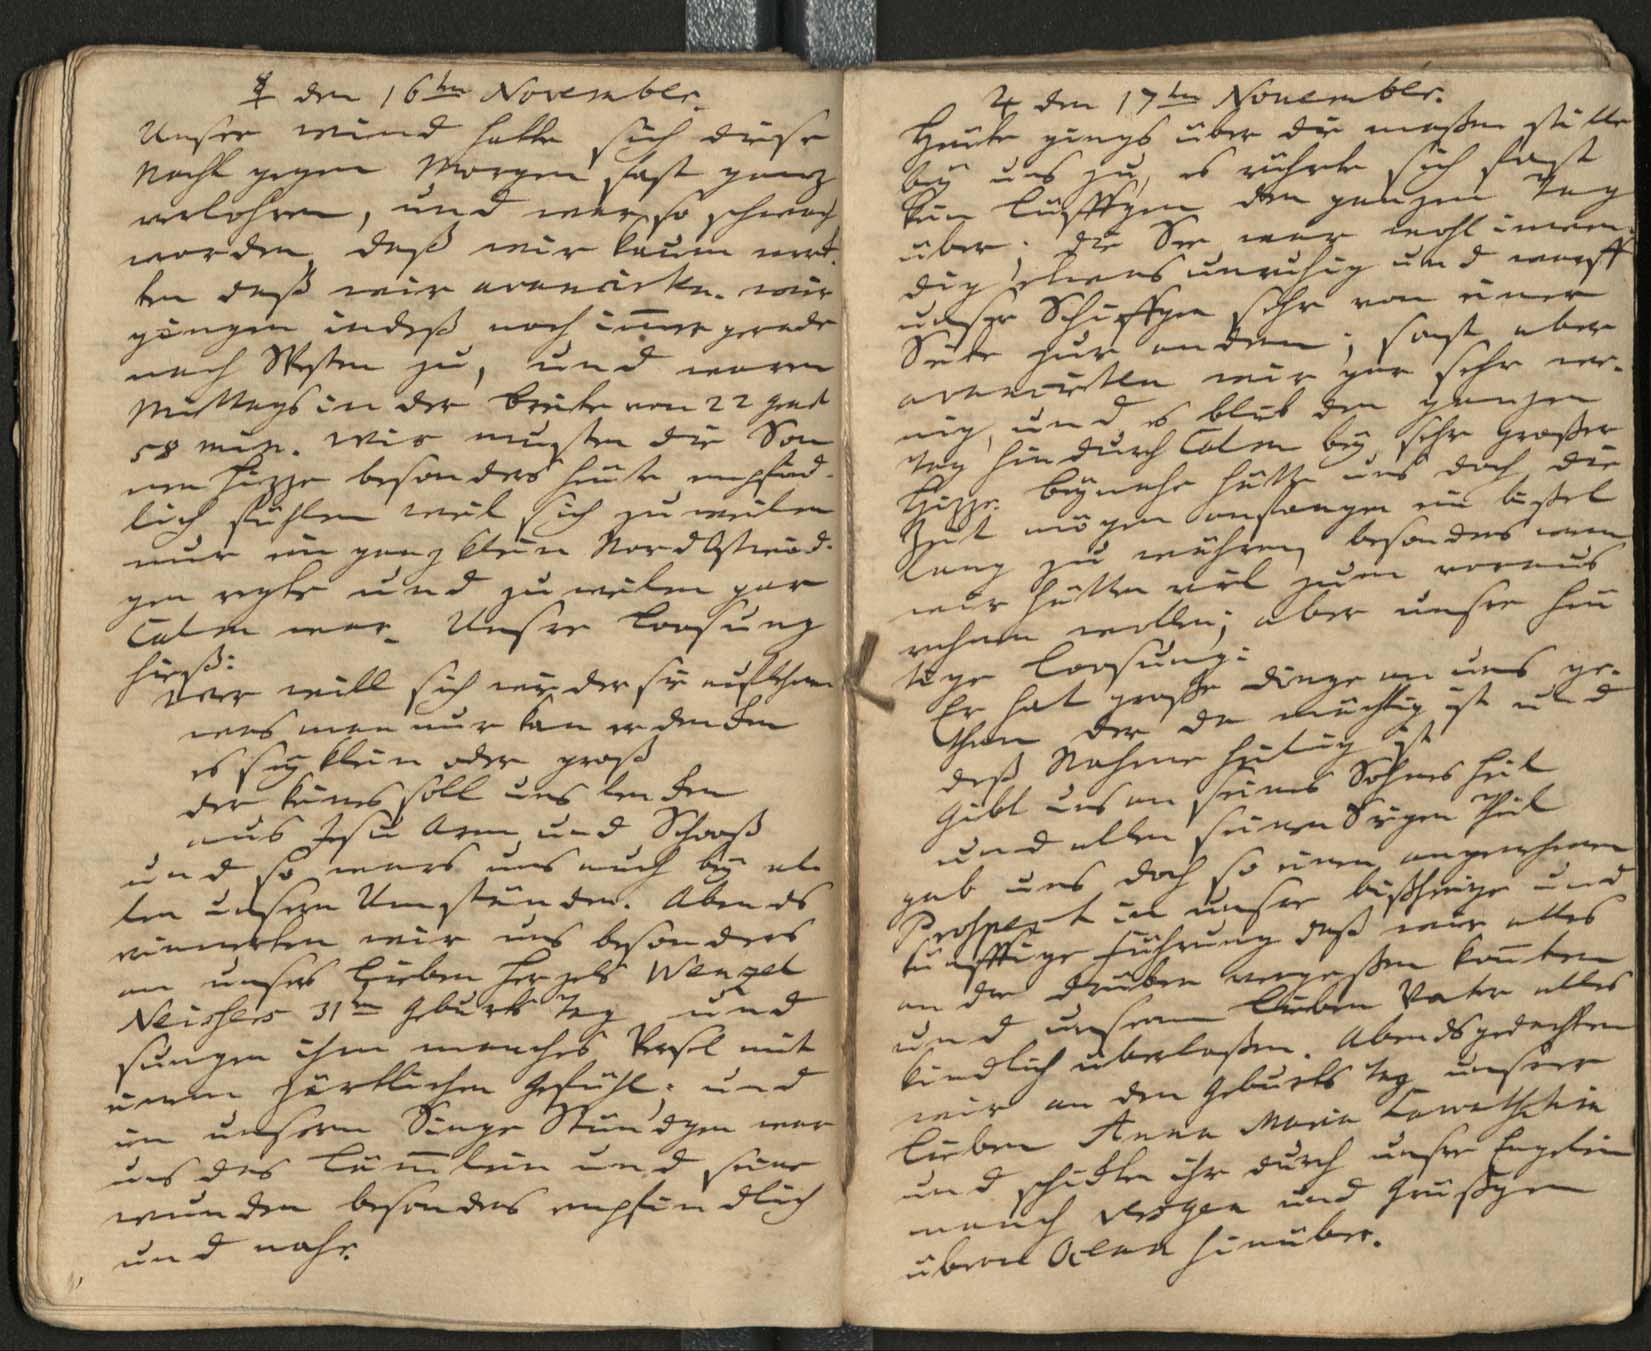 ☿ den 16ten November.
Unser wind hatte sich diese
Nacht gegen Morgen fast ganz
verlohren, und war so schwach
worden, daß wir kaum merk-
ten daß wir avancirten. wir
gingen indeß noch immer gerade
nach Westen zu, und waren
Mittags in der breite von 22 grad
58 min. Wir mußten die Son
nen Hizze besonders heute empfind-
lich fühlen weil sich zu weilen
nur ein ganz klein Nord Ostwind-
gen regte und zu weilen gar
Calm war. Unsre Loosung
hieß:
Wer will sich wieder sie auflehnen
was man nur kan erdencken
es sey klein oder groß
der keines soll uns lencken
aus Jesu Arm und Schooß
und so wars uns auch bey al-
len unsern Umständen. Abends
erinnerten wir uns besonders
an unsers lieben Herzels Wenzel
Neissers 31ten Geburts Tag und
sungen ihm manches Versel mit
einem zärtlichen Gefühl; und
in unserm Singe Stündgen war
uns das Lämmlein und seine
wunden besonders empfindlich
und nahe.
♃ den 17ten November.
Heute gings über die maßen stille
bey uns zu, es rührte sich fast
kein Lüfftgen den ganzen Tag
über; die See war wohl inwen-
dig etwas unruhig und warff
unser Schiffgen sehr von einer
Seite zur andern; sonst aber
avancirten wir gar sehr we-
nig, und es blieb den ganzen
Tag hindurch Calm bey sehr großer
Hizze. beynahe hätte uns doch die
Zeit mögen anfangen ein bißel
lang zu währen, besonders wenn
wir hätten viel zum voraus
rechnen wollen; aber unsre heu
tige Loosung:
Er hat große dinge an uns ge-
than der da mächtig ist und
deß Nahme heilig ist
Gibt uns an seines Sohnes Heil
und allen seinen Seegen Theil
gab uns doch so einen angenehmen
Prospect in unsre bißherige und
künfftige Führung daß wir alles
an die drüben vergeßen konnten
und unserm lieben Vater alles
kindlich überlaßen. Abends gedachten
wir an den Geburts Tag unsrer
lieben Anna Maria Lawatschkin
und schickten ihr durch unsre Engelein
manch Versgen und Grüßgen
übern Ocean hinüber.